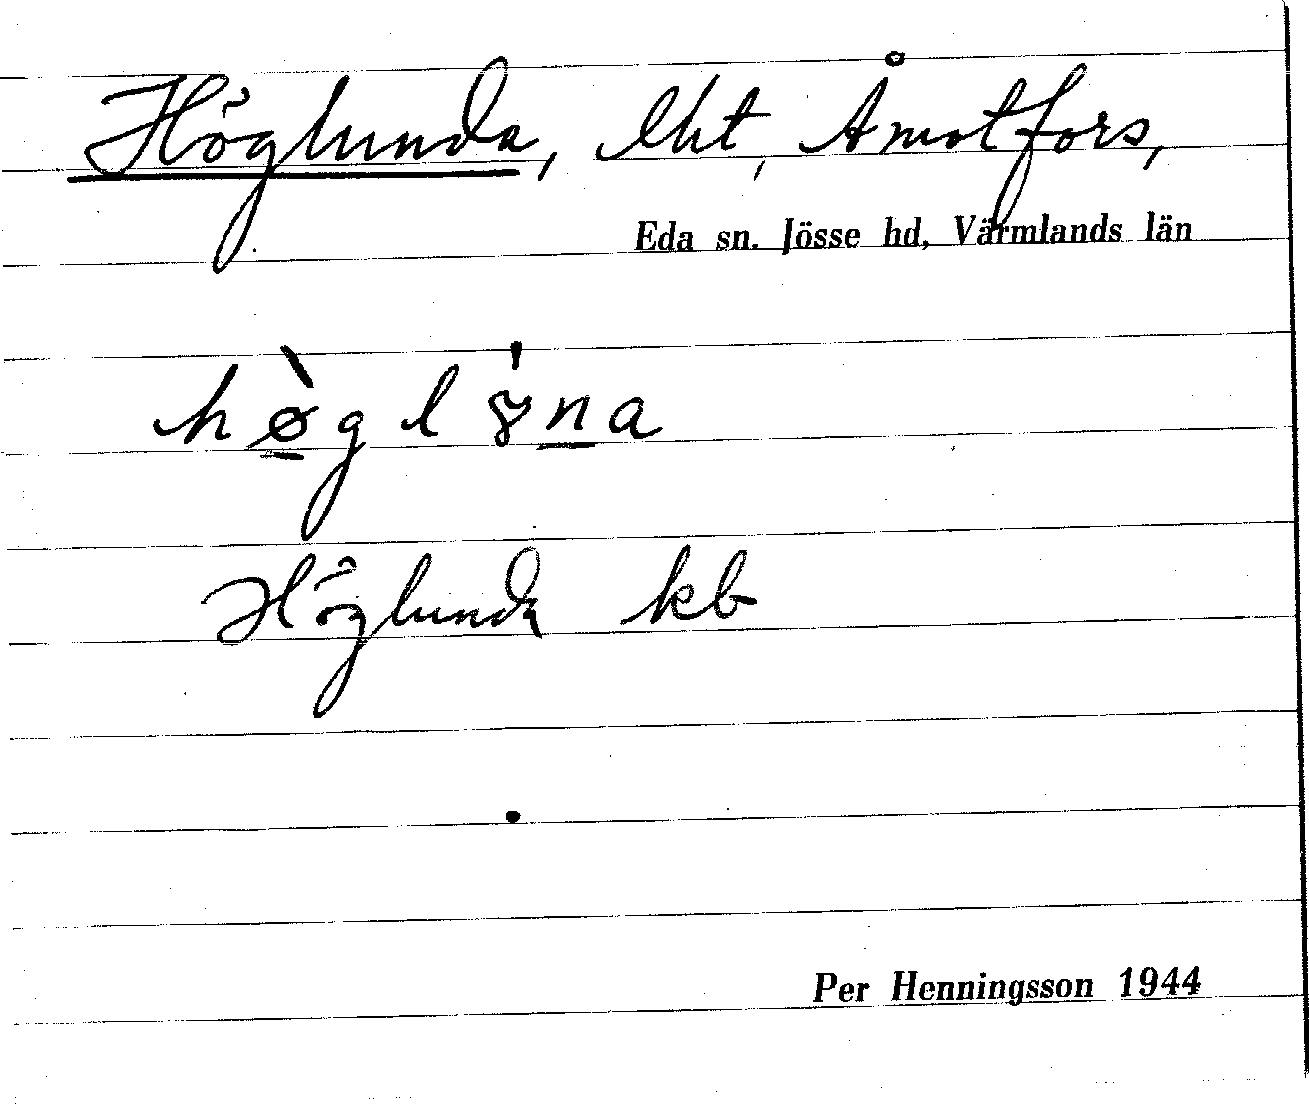 Höglunda, lht, Åmotfors,
Eda sn. Jösse hd, Värmlands län
hø̀glɤ́na
Höglunda kb
Per Henningsson 1944